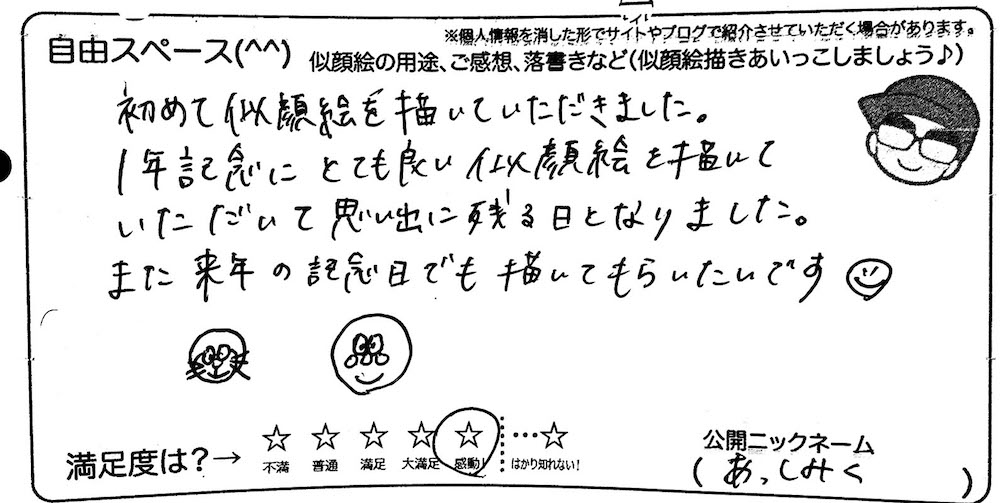 ※個人情報を消した形でサイトやブログで紹介させていただく場合があります。
自由スペース(^^)
似顔絵の用途、ご感想、落書きなど(似顔絵描きあいっこしましょう♪)
初めて似顔絵を描いていただきました。
1年記念にとても良い似顔絵を描いて
いただいて思い出に残る日となりました。
また来年の記念日でも描いてもらいたいです
満足度は?→ ☆ ☆ ☆ ☆ ☆ …☆
不満 普通 満足 大満足 感動! はかり知れない!
公開ニックネーム
(あっしみく)